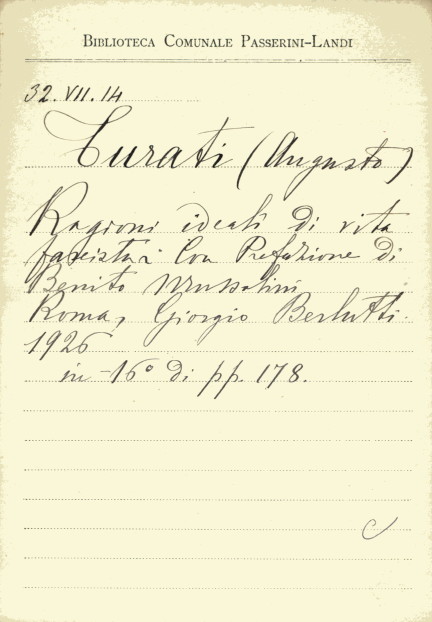 BIBLIOTECA COMUNALE PASSERINI-LANDI
32.VII.14
Turati (Augusto)
Ragioni ideali di vita
fascista. Con Prefazione di
Benito Mussolini
Roma, Giorgio Berlutti.
1926
in-16° di pp. 178.
C